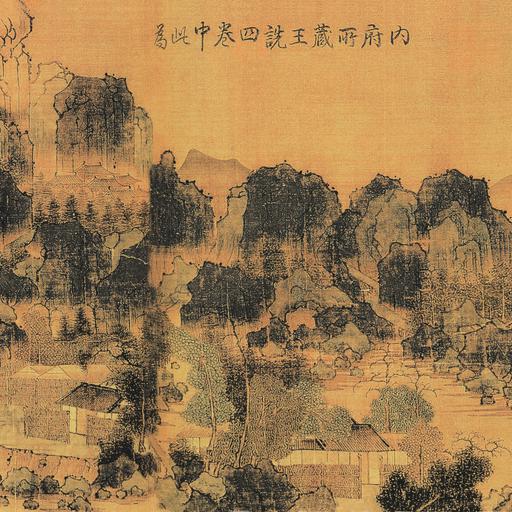 内府所藏王詵四卷中此為